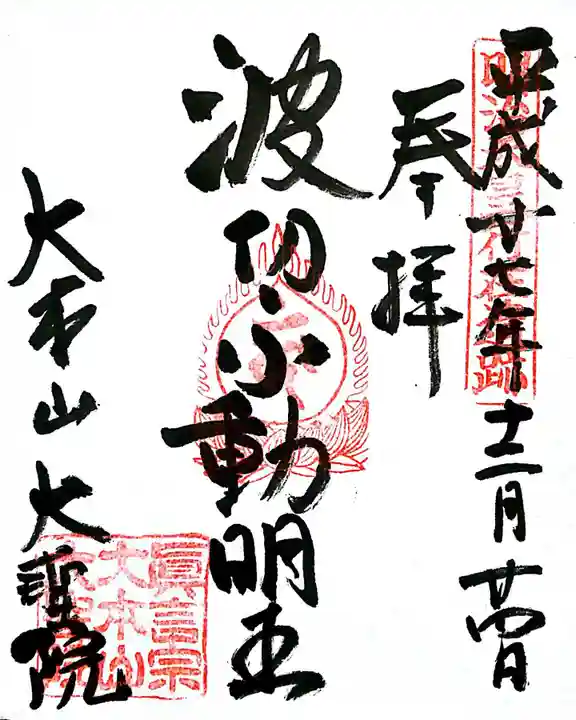 平成廿七年十二月廿四日
奉拝
波切不動明王
大本山大聖院
眞言宗
大本山